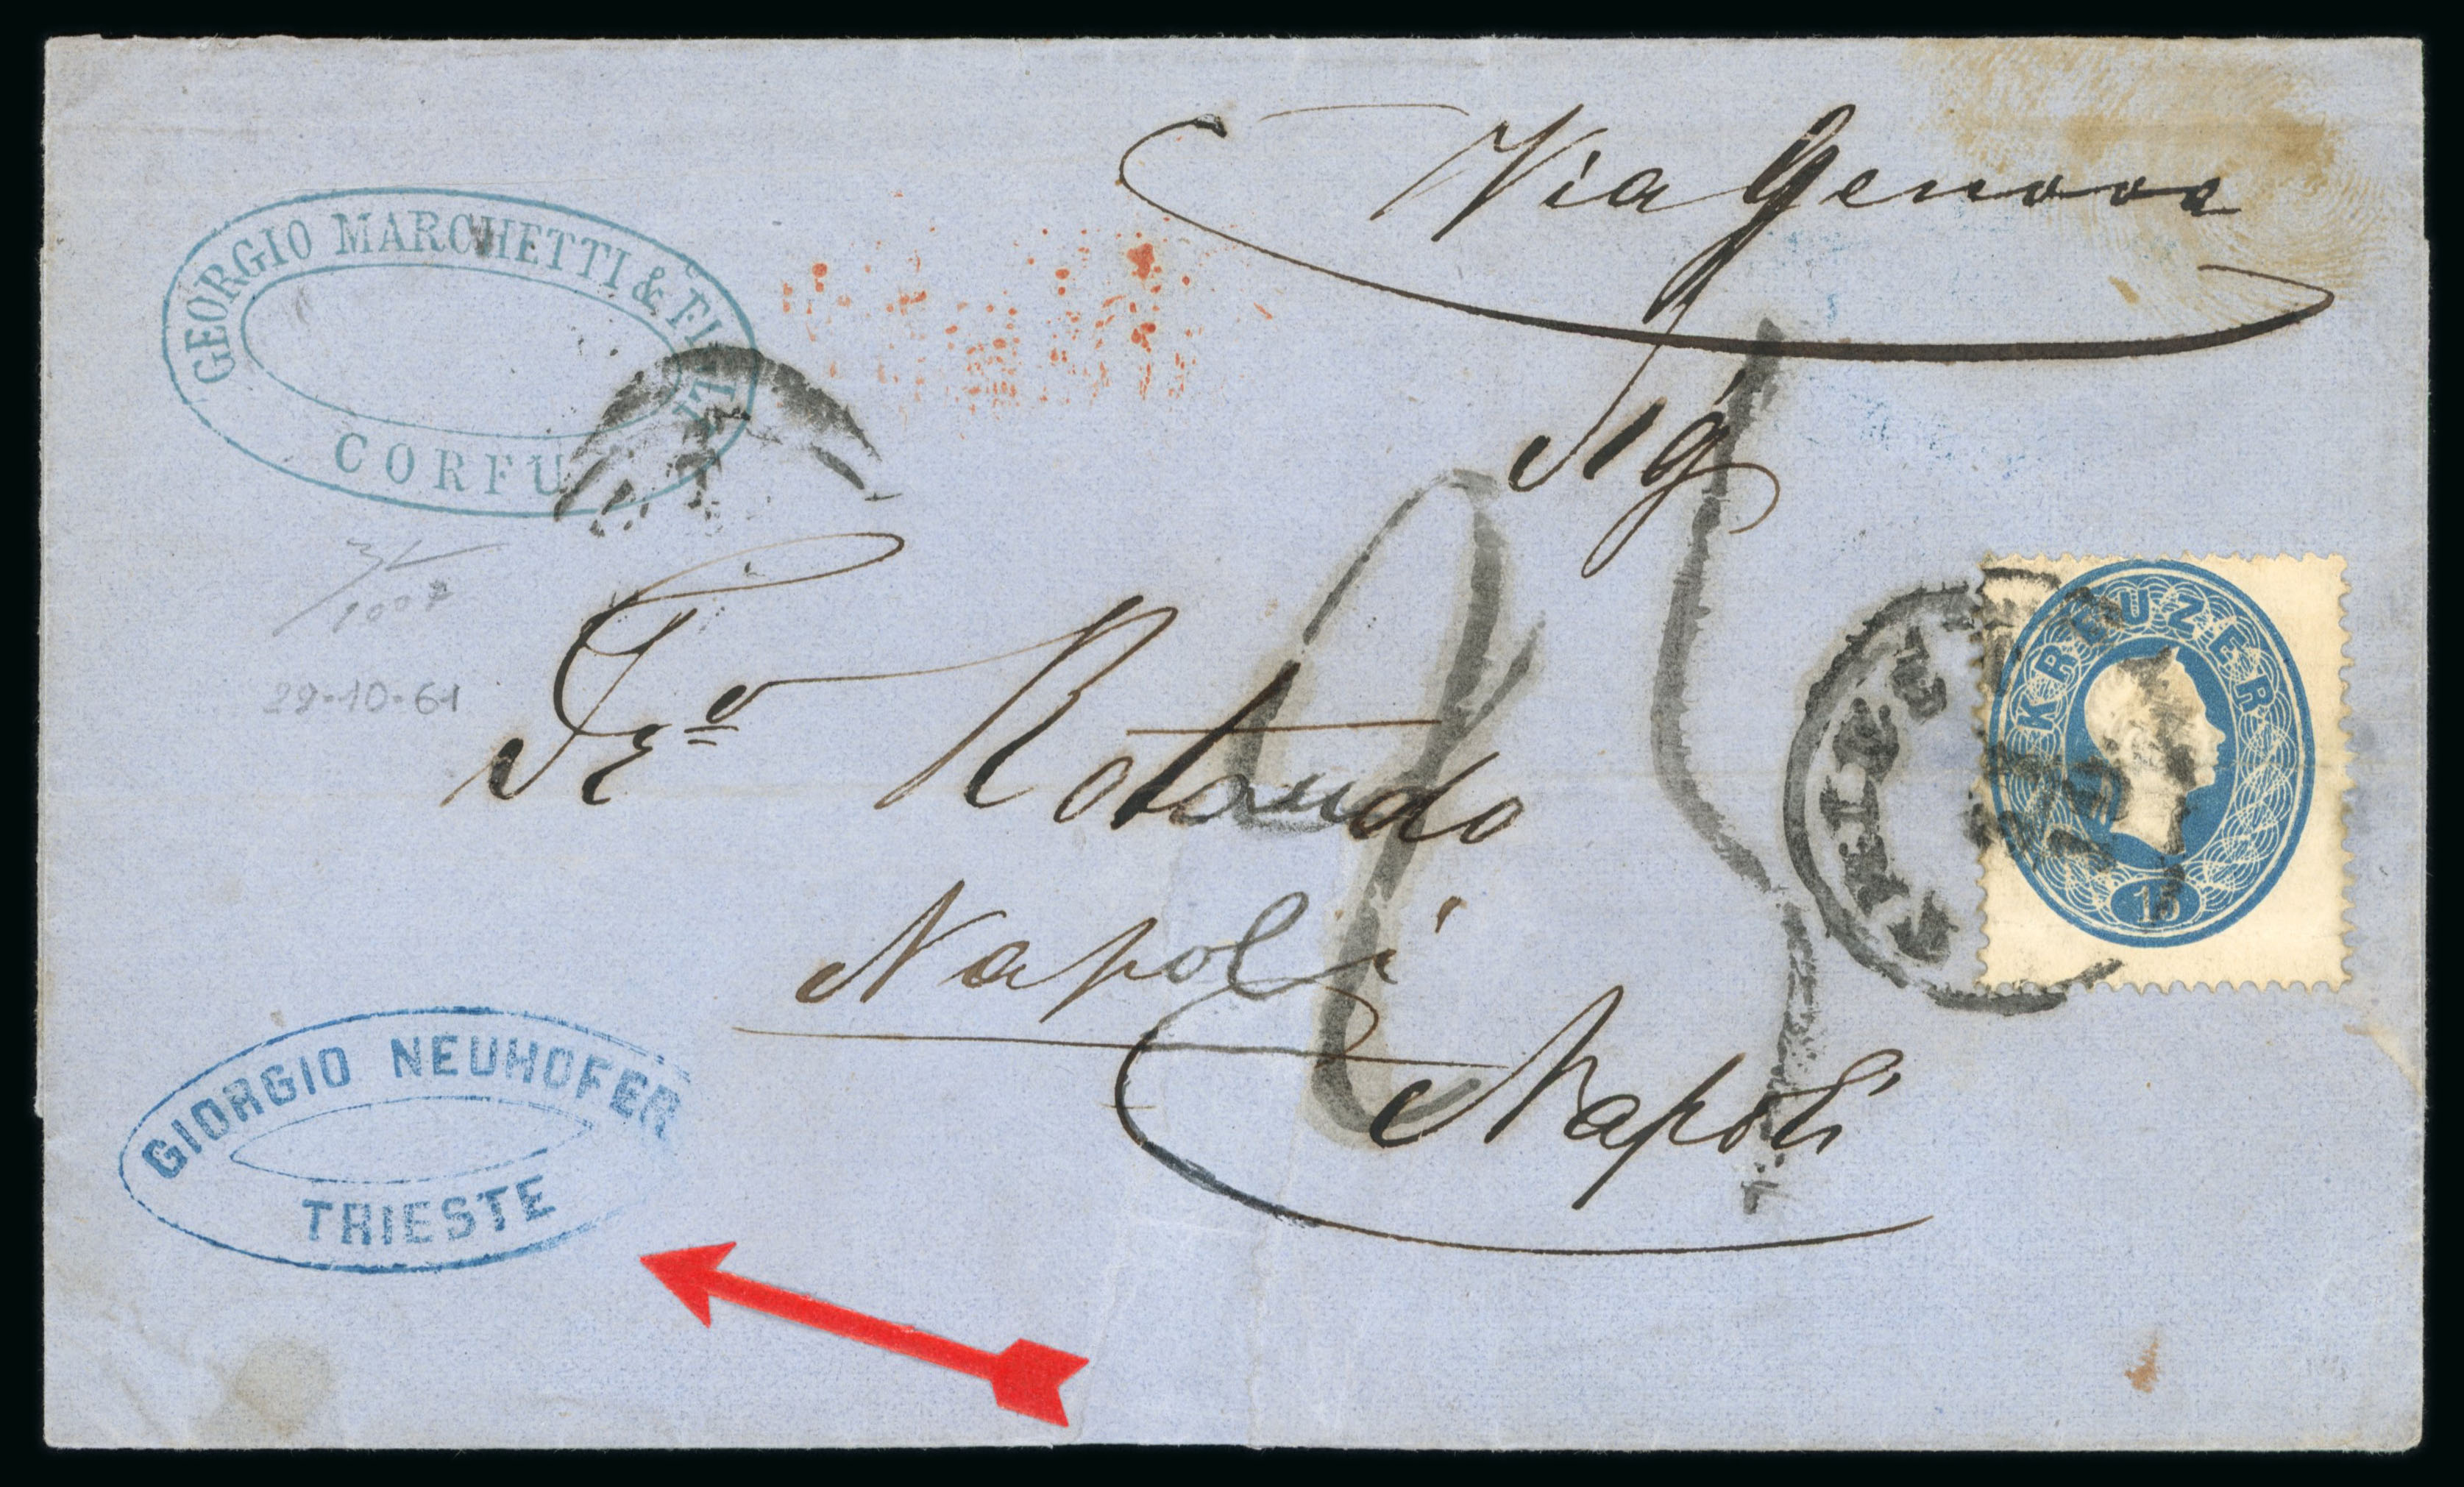 Via Genova
GEORGIO MARCHETTI & FI
CORFU
Sig
Fr⁰ Rotondo
Napoli
Napoli
29.10.61
KREUZER
15
TRIEST
GIORGIO NEUHOFER
TRIESTE